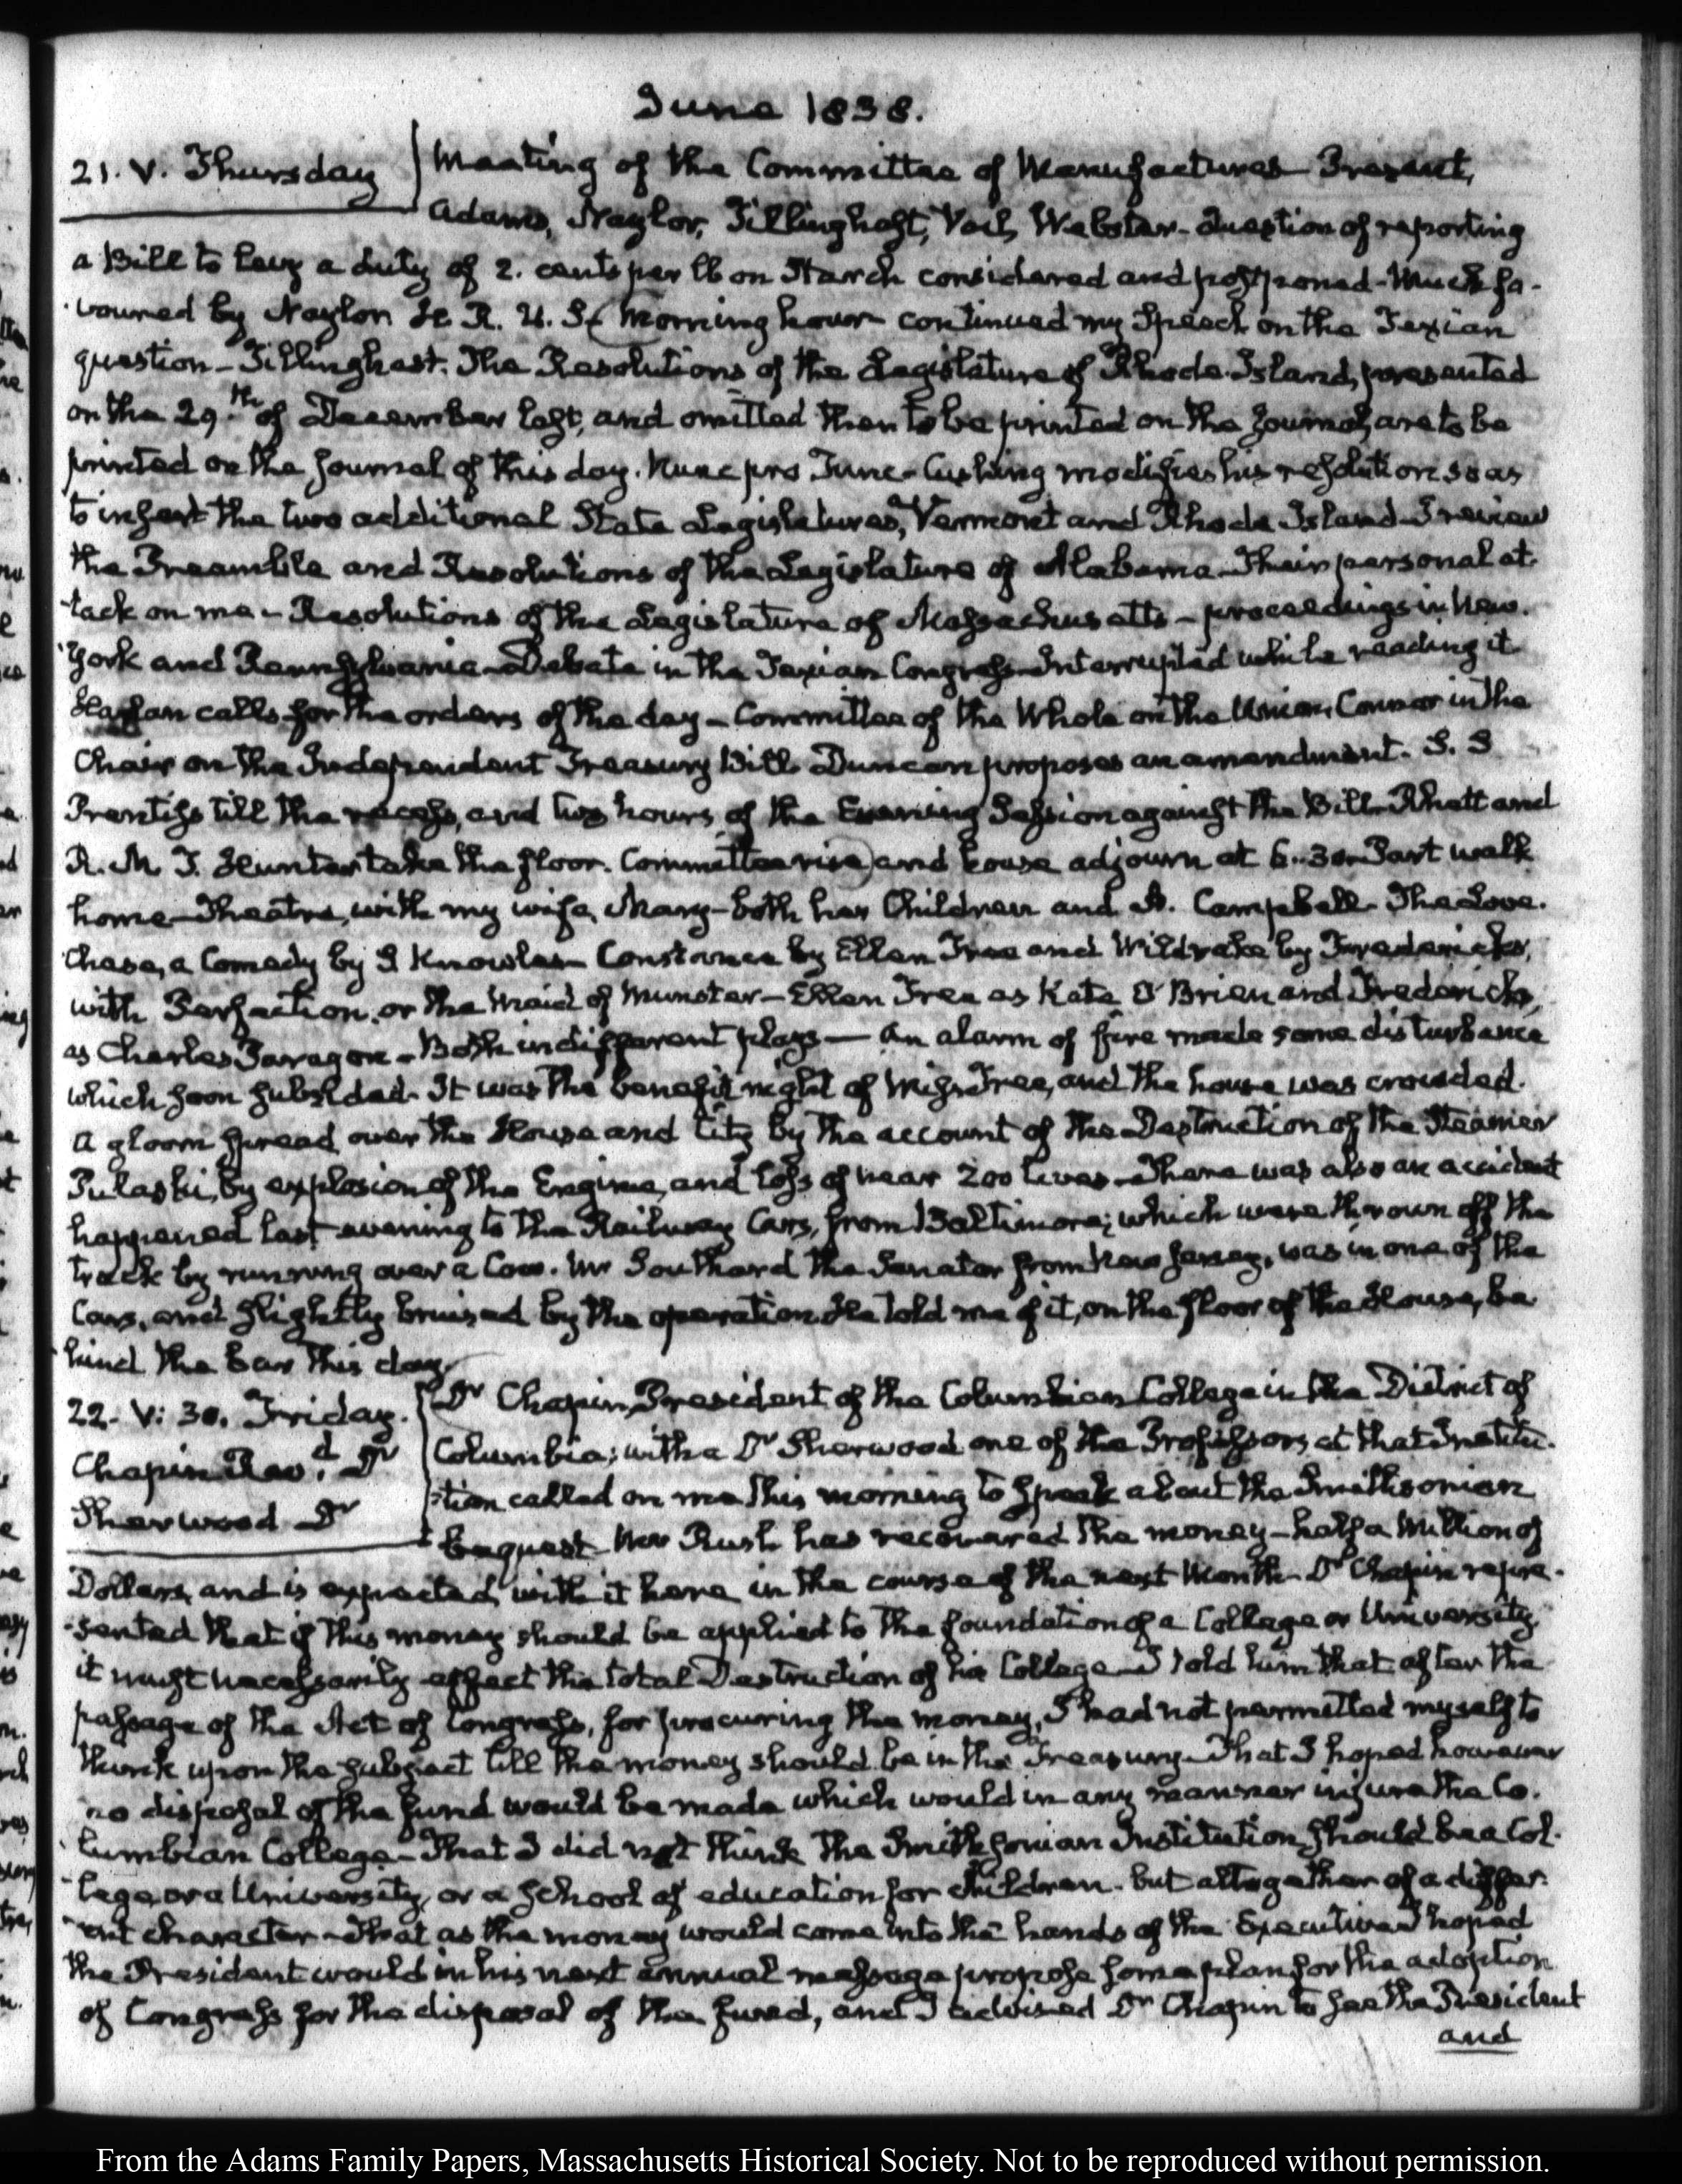 June 1838.
21. V. Thursday
Meeting of the Committee of Manufactures Present,
Adams, Naylor, Tillinghast, Vail, Webster - Question of reporting
a Bill to levy a duty of 2. cents per lb on Starch considered and postponed - Much fa-
voured by Naylor H. R. U. S. Morning hour continued my Speech on the Texian
question - Tillinghast. The Resolutions of the Legislature of Rhode-Island, presented
on the 29th of December last, and omitted then to be printed on the Journal, are to be
printed on the Journal of this day. Nunc pro Tunc - Cushing modifies his resolution so as
to insert the two additional State Legislatures, Vermont and Rhode Island - I review
the Preamble and Resolutions of the Legislature of Alabama - Their personal at-
tack on me - Resolutions of the Legislature of Massachusetts - proceedings in New-
York and Pennsylvania - Debate in the Texian Congress - Interrupted while reading it
Harlan calls for the orders of the day - Committee of the Whole on the Union, Connor in the
Chair on the Independent Treasury Bill. Duncan proposes an amendment. S. S
Prentiss till the recess, and two hours of the Evening Session against the Bill. Rhett and
R. M. T. Hunter take the floor. Committee rise and house adjourn at 6..30. Part walk
home - Theatre, with my wife, Mary - both her Children and A. Campbell - The Love-
Chase, a Comedy by S Knowles - Constance by Ellen Tree and Wildrake by Fredericks,
with Perfection, or the Maid of Munster - Ellen Tree as Kate O'Brien and Fredericks,
as Charles Paragon - Both indifferent plays - An alarm of fire made some disturbance
which soon subsided. It was the benefit night of Miss Tree, and the house was crowded.
A gloom spread over the House and City by the account of the Destruction of the Steamer
Pulaski, by explosion of the Engine, and loss of near 200 lives - There was also an accident
happened last evening to the Railway Cars, from Baltimore; which were thrown off the
track by running over a Cow. Mr Southard the Senator from New Jersey, was in one of the
Cars, and slightly bruised by the operation He told me of it, on the floor of the House, be
hind the bar this day.
22. V: 30. Friday.
Chapin Revd. Dr
Sherwood Dr
Dr Chapin, President of the Columbian College in the District of
Columbia; with a Dr Sherwood one of the Professors, at that Institu-
tion called on me this morning to speak about the Smithsonian
bequest Mr Rush has recovered the money - half a Million of
Dollars, and is expected with it here in the course of the next Month - Dr Chapin repre-
sented that if this money should be applied to the foundation of a College or University
it must necessarily effect the total Destruction of his College - I told him that after the
passage of the Act of Congress, for procuring the money, I had not permitted myself to
think upon the subject till the money should be in the Treasury - That I hoped however
no disposal of the fund would be made which would in any manner injure the Co-
lumbian College - That I did not think the Smithsonian Institution should be a Col-
lege or a University, or a School of education for children - but altogether of a differ-
ent character - That as the money would come into the hands of the Executive I hoped
the President would in his next annual message propose some plan for the adoption
of Congress for the disposal of the fund, and I advised Dr Chapin to see the President
and
From the Adams Family Papers, Massachusetts Historical Society. Not to be reproduced without permission.